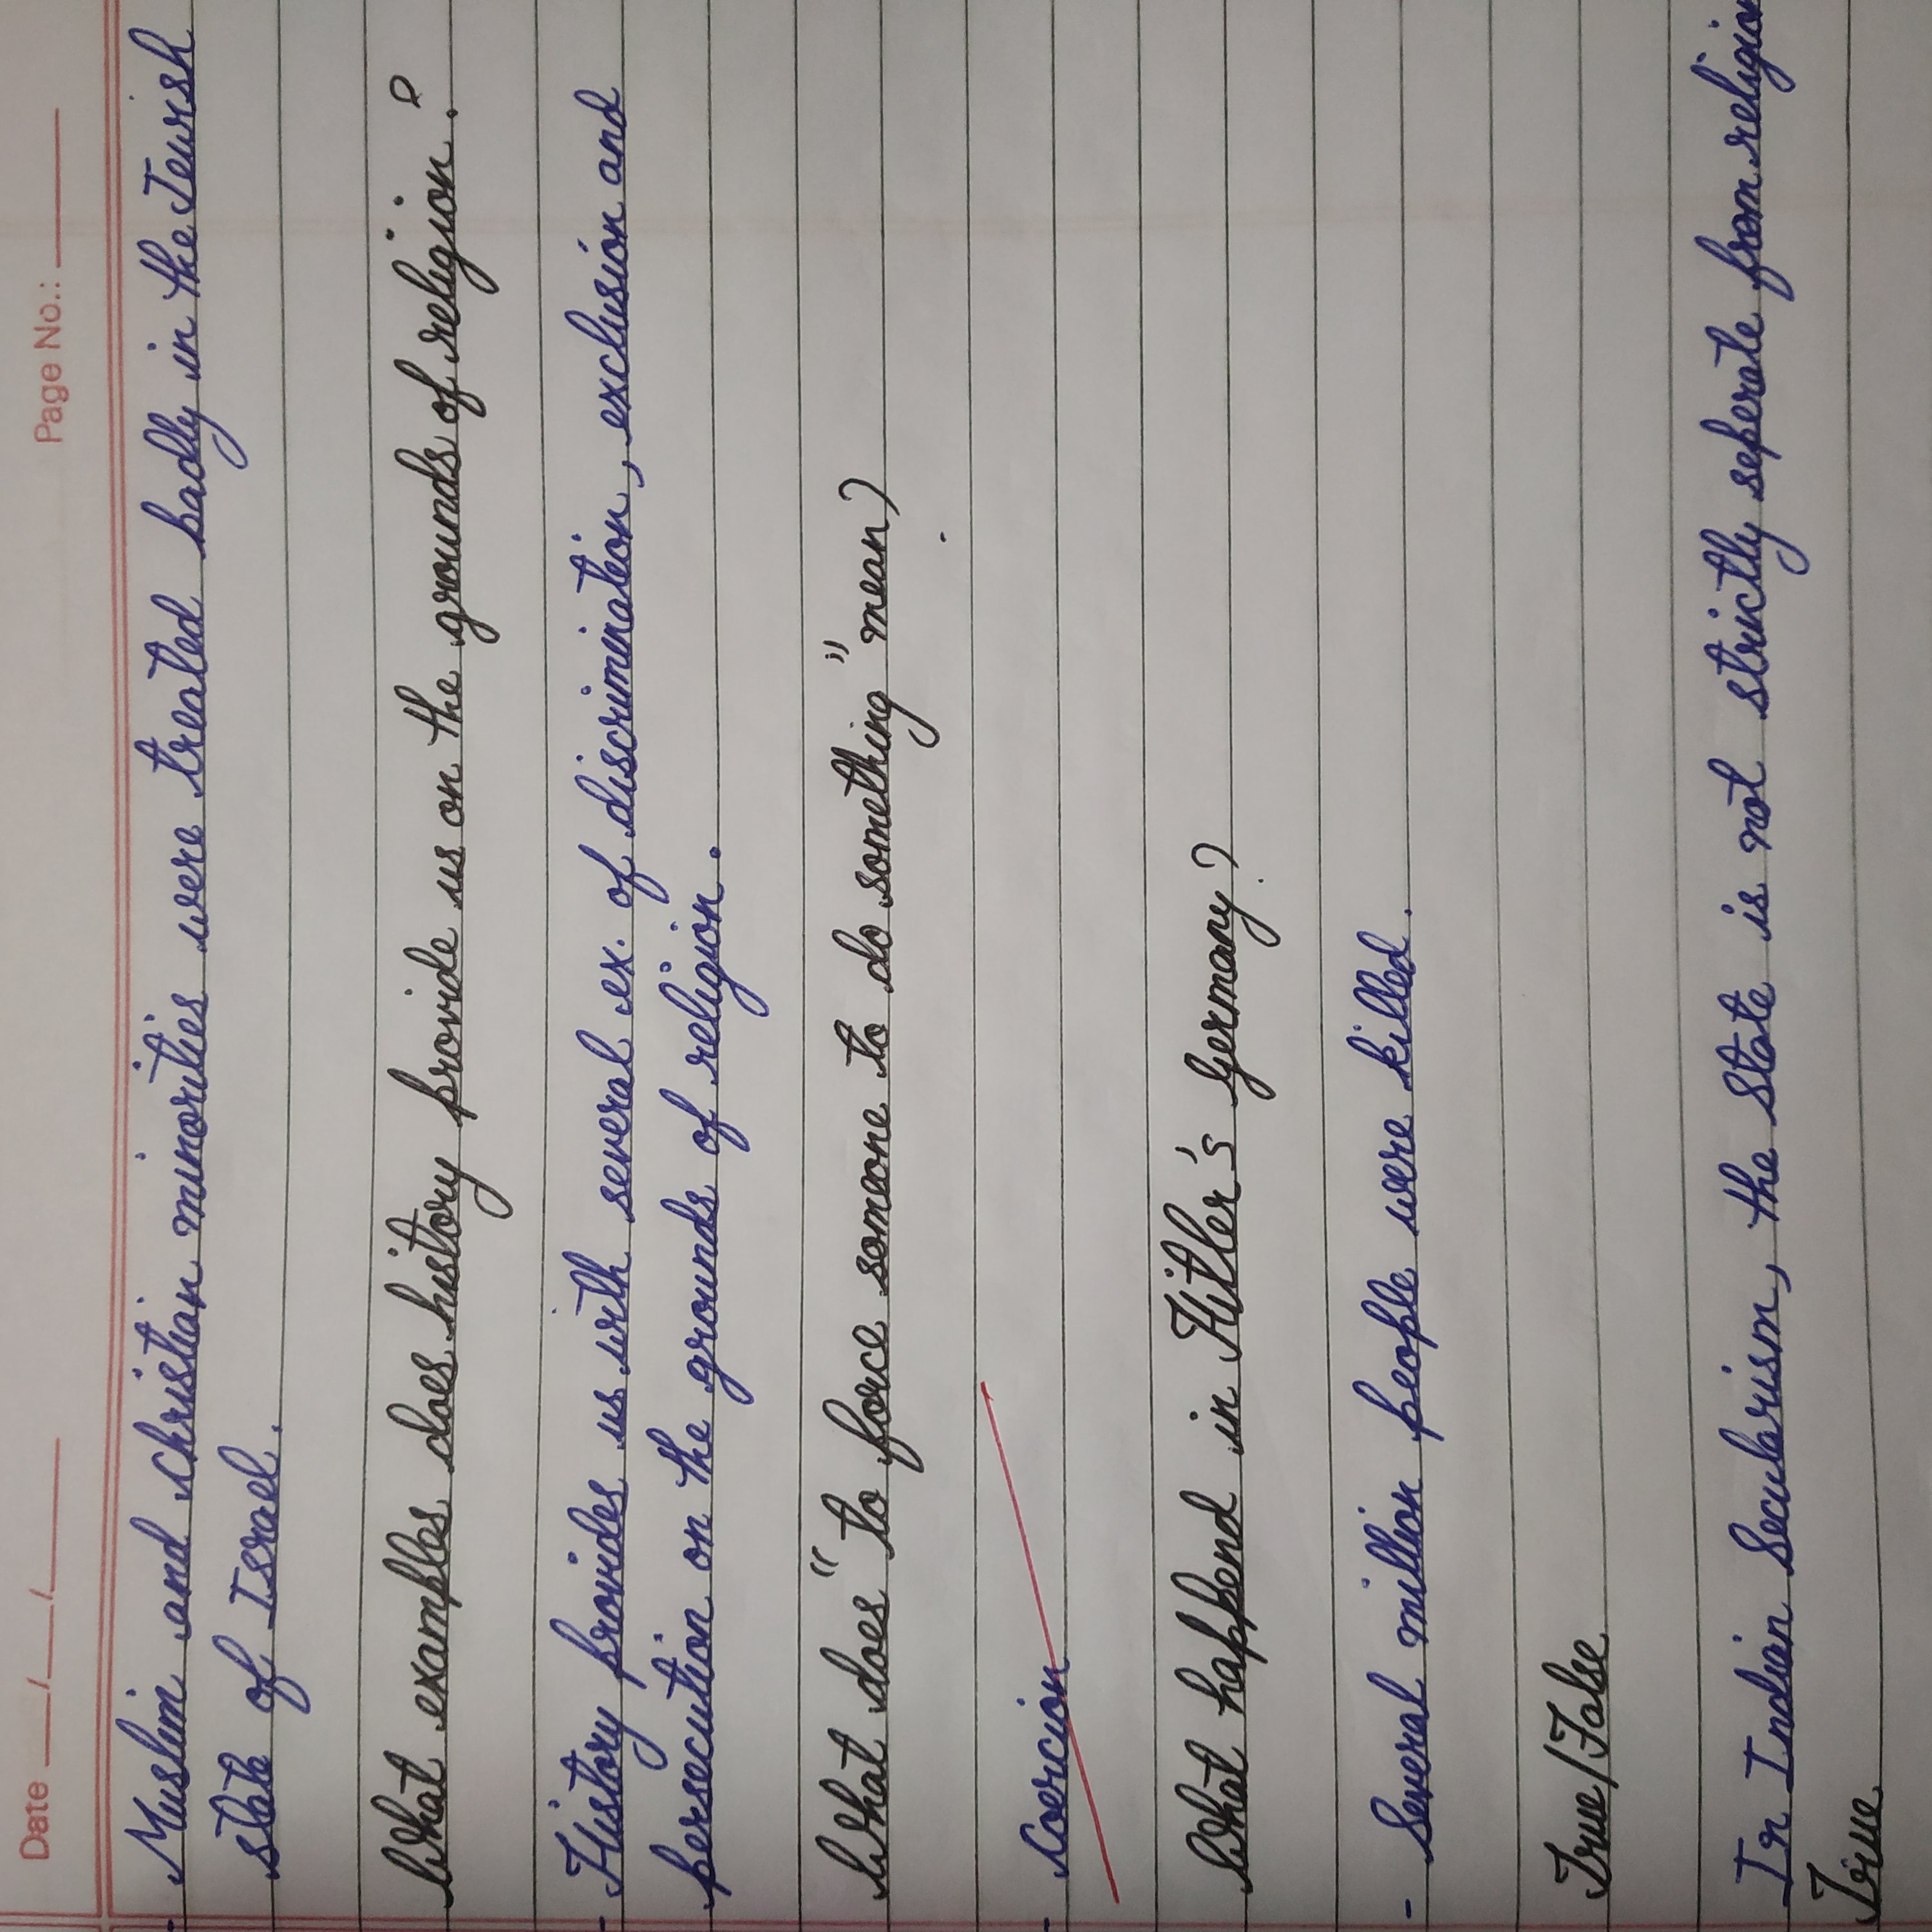 Date ___/___/___ Page No.: ___
- Muslim and christian minorities were treated badly in the Jewish
state of Israel.
What examples does history provide us on the grounds of religion?
- History provides us with several ex. of discrimination, exclusion and
persecution on the grounds of religion.
What does "to force someone to do something" mean?
- Coercion
What happend in Hitler's Germany?
- Several million people were killed.
True/False
In Indian Secularism, the State is not strictly seperate from religion
True